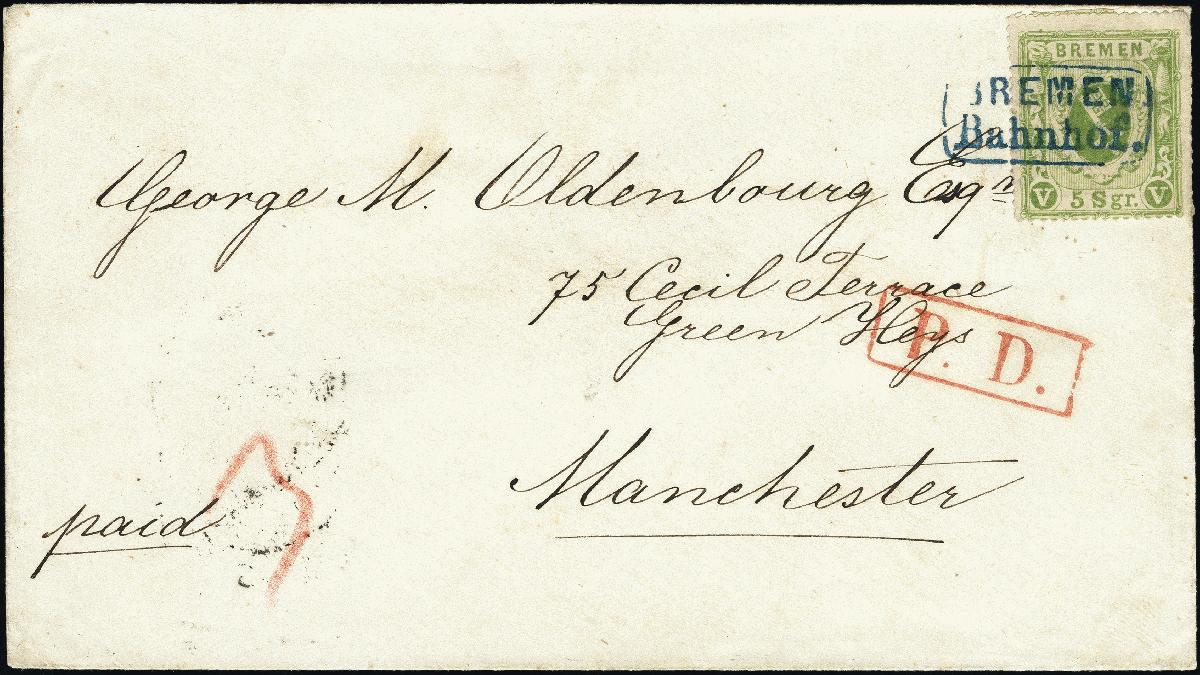 BREMEN
BREMEN
Bahnhof.
V 5 Sgr. V
George M. Oldenbourg Esqr
75 Cecil Terrace
Green Heys
P. D.
Manchester
paid